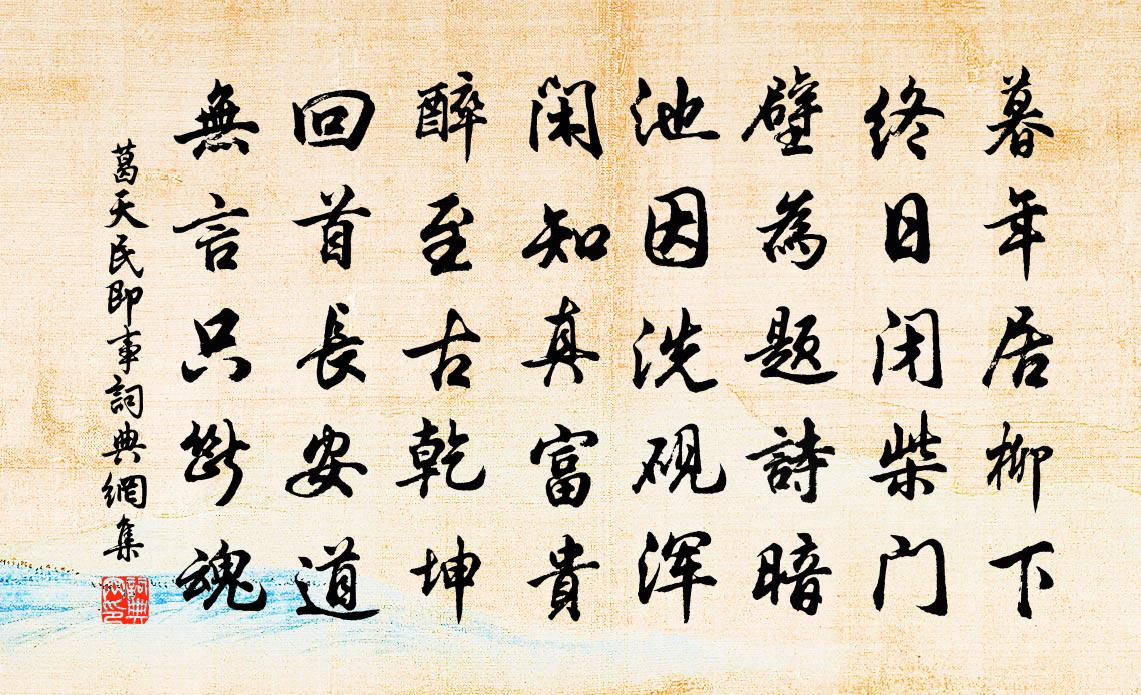 暮年居柳下
终日闭柴门
壁為题詩暗
池因洗砚浑
闲知真富貴
醉至古乾坤
回首長安道
無言只断魂
葛天民即事詞典網集